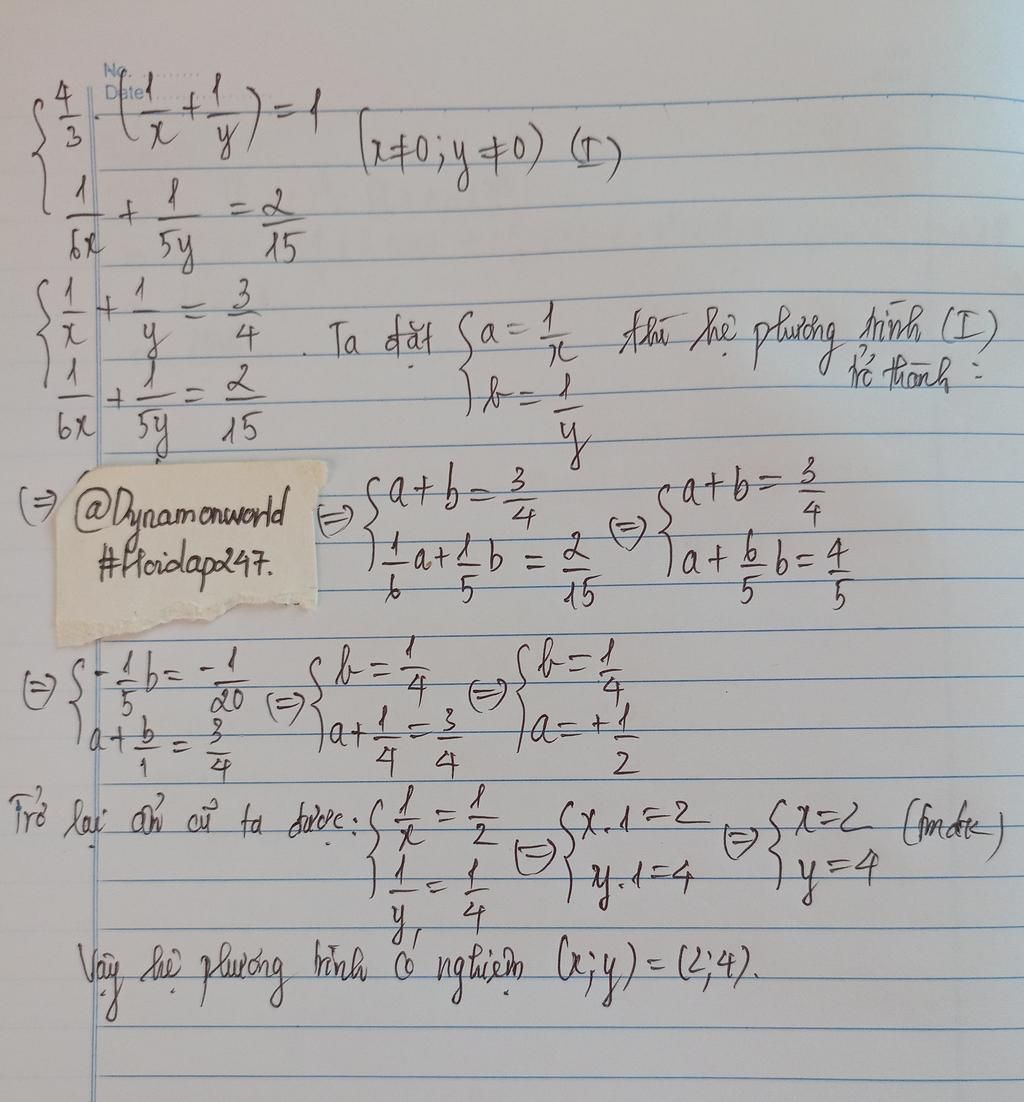 No.
Date
{ 4/3 . (1/x + 1/y) = 1
(x≠0; y≠0) (I)
1/6x + 1/5y = 2/15
{ 1/x + 1/y = 3/4
1/6x + 1/5y = 2/15
. Ta đặt { a = 1/x
b = 1/y
thì hệ phương trình (I)
trở thành :
(=)
@Dynamonworld
#Hoidap247.
(=) { a + b = 3/4
1/6 a + 1/5 b = 2/15
(=) { a + b = 3/4
a + 6/5 b = 4/5
(=) { -1/5 b = -1/20
a + b/1 = 3/4
(=) { b = 1/4
a + 1/4 = 3/4
(=) { b = 1/4
a = +1/2
Trở lại ẩn cũ ta được: { 1/x = 1/2
1/y = 1/4
(=) { x . 1 = 2
y . 1 = 4
(=) { x = 2 (tmđk)
y = 4
Vậy hệ phương trình có nghiệm (x; y) = (2; 4).